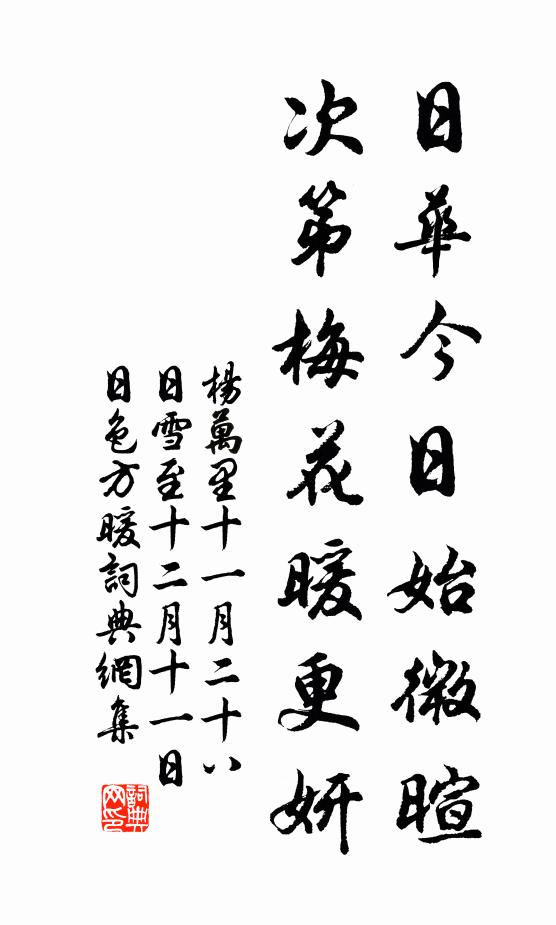 日華今日始微暄
次第梅花暖更妍
楊萬里十一月二十八
日雪至十二月十一日
日色方暖詞典網集
詞典网印